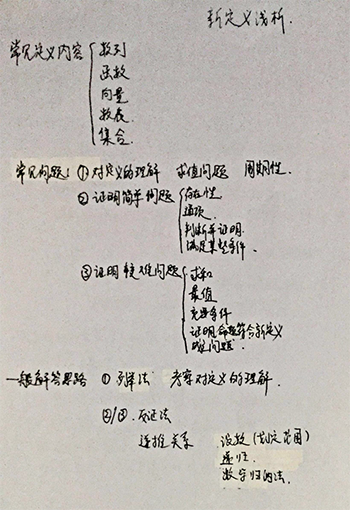 新定义浅析.
常见定义内容 { 数列
函数
向量
数表.
集合.
常见问题: ①对定义的理解 求值问题 周期性.
②证明简单问题 { 存在性
通项.
判断并证明.
满足某些条件.
③证明较难问题 { 求和
最值
充要条件
证明命题符合新定义
难问题.
一般解答思路 ① 列举法 考察对定义的理解.
②/③. 反证法
递推关系 设数(划定范围)
递归.
数学归纳法.